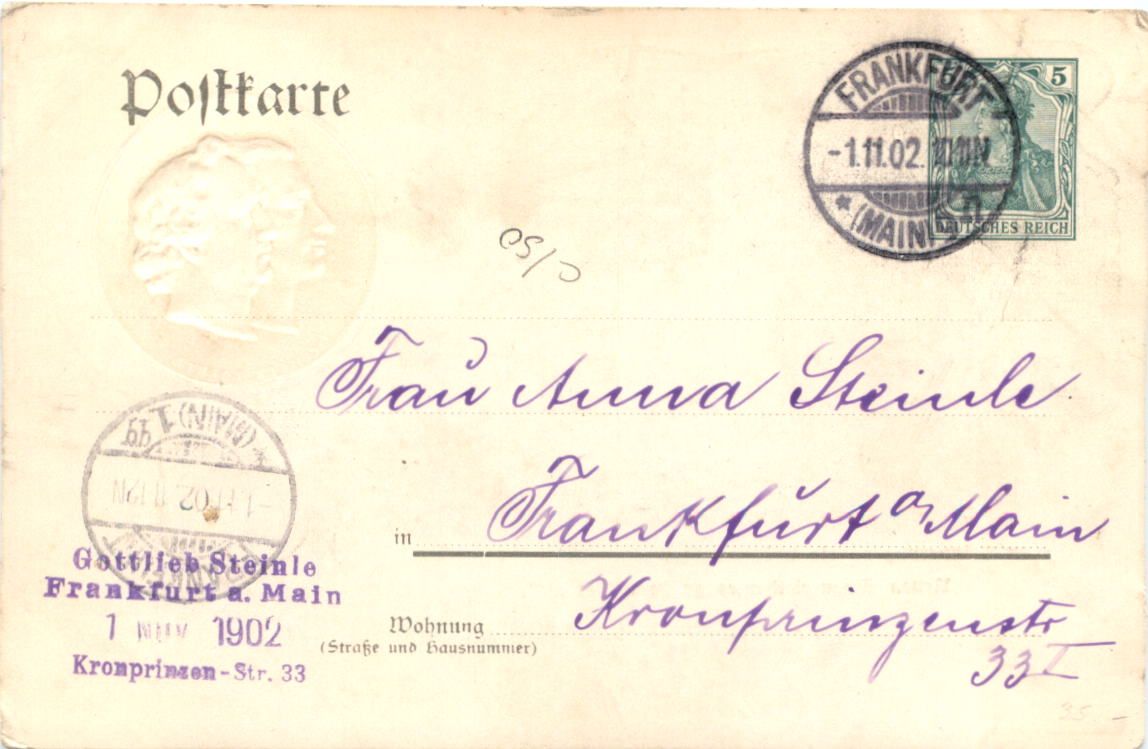 Postkarte
FRANKFURT
-1.11.02.
(MAIN)
5
DEUTSCHES REICH
Frau Anna Steinle
in Frankfurt a/Main
Wohnung
(Straße und Hausnummer)
Kronprinzenstr
33 I
*(MAIN) 1
-1.11.02. 11-12N
FRANKFURT
Gottlieb Steinle
Frankfurt a. Main
1 NOV 1902
Kronprinzen-Str. 33
35 -